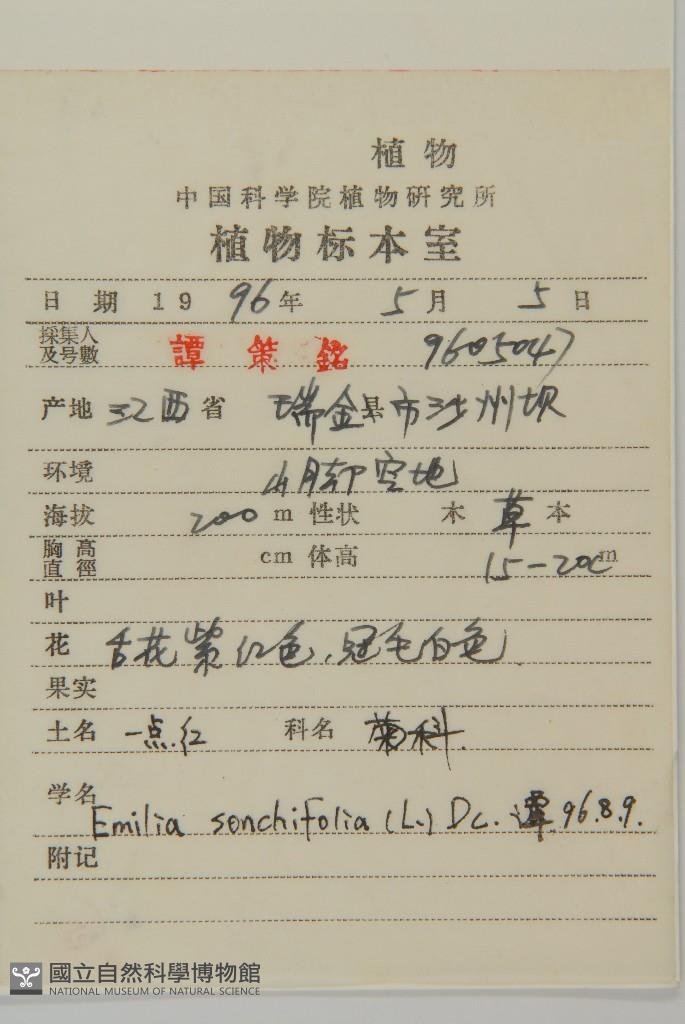 植物
中国科学院植物研究所
植物标本室
日期 1996年 5月 5日
採集人及号數 譚策銘 9605047
产地 江西省 瑞金县市沙州坝
环境 山脚空地
海拔 200 m 性状 木 草 本
胸高直徑 cm 体高 15-20cm
叶
花 舌花紫红色,冠毛白色.
果实
土名 一点红 科名 菊科.
学名 Emilia sonchifolia (L.) DC. 譚. 96.8.9.
附记
國立自然科學博物館
NATIONAL MUSEUM OF NATURAL SCIENCE